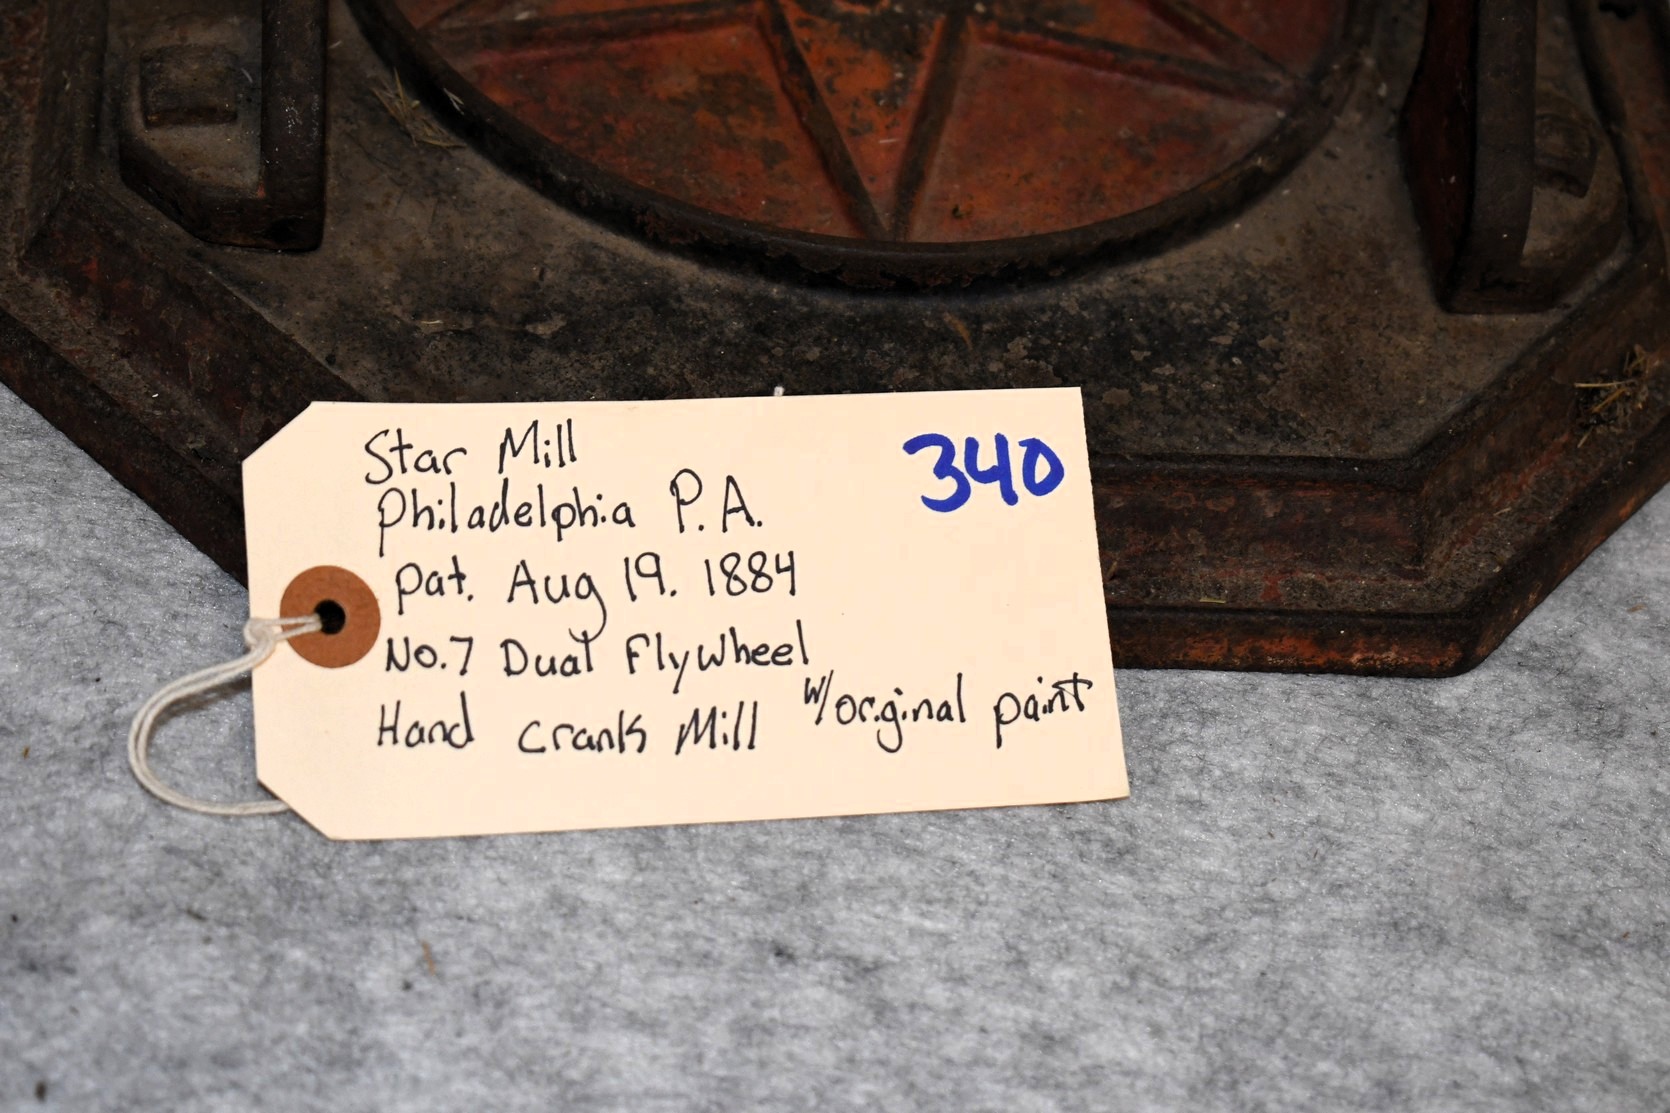 Star Mill
340
Philadelphia P.A.
Pat. Aug 19. 1884
No.7 Dual Flywheel
Hand Crank Mill w/original paint